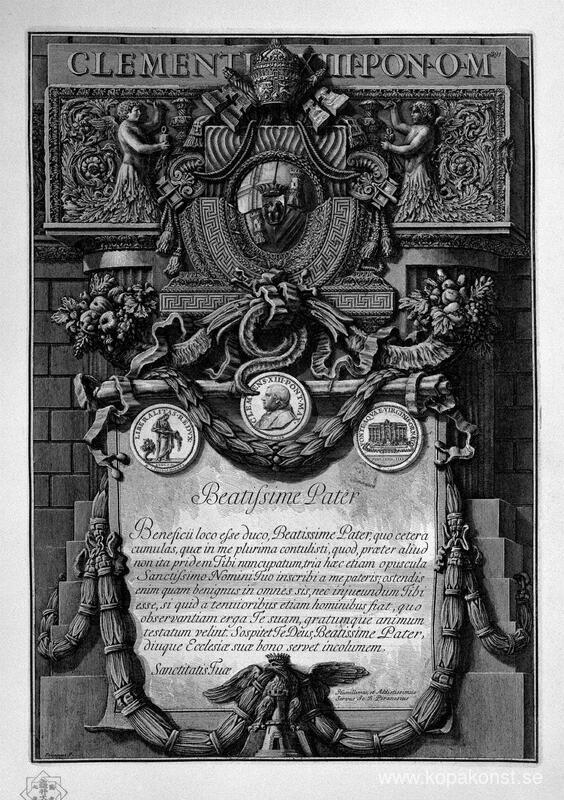 CLEMENTI XIII·PON·O·M
LIBERALITAS·REDUX
CLEMENS·XIII·PONT·MA
Beatissime Pater
Beneficii loco esse duco, Beatissime Pater, quo cetera
cumulas, quæ in me plurima contulisti, quod, præter aliud
non ita pridem Tibi nuncupatum, tria hæc etiam opuscula
Sanctissimo Nomini Tuo inscribi a me pateris; ostendis
enim quam benignus in omnes sis, nec injucundum Tibi
esse, si quid a tenuioribus etiam hominibus fiat, quo
observantiam erga Te suam, gratumque animum
testatum velint. Sospitet Te Deus, Beatissime Pater,
diuque Ecclesiæ suæ bono servet incolumem.
Sanctitatis Tuæ
Humillimus, et Addictissimus
Servus Jo. B. Piranesius
Piranesi F.
www.kopakonst.se